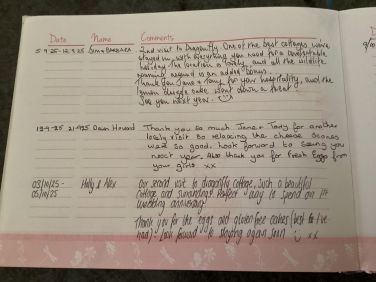 Date Name Comments
5.9.25-12.9.25 Jim & Barbara 2nd visit to Dragonfly. One of the best cottages we've
stayed in, with everything you need for a comfortable
holiday. The location is lovely, and all the wildlife
roaming around is an added bonus.
Thank you Jane & Tony for your hospitality, and the
lemon drizzle cake went down a treat!
See you next year.
19-9-25 21-9-25 Dawn Howard Thank you so much Jane & Tony for another
lovely visit so relaxing the cheese scones
were so good. look forward to seeing you
next year. Also thank you for Fresh Eggs from
your girls xx
03/10/25 - Holly & Alex Our second visit to dragonfly cottage, such a beautiful
05/10/25 cottage and surroundings! Perfect way to spend our 1st
wedding anniversary.
Thank you for the eggs and gluten free cakes (best I've
had). Look forward to staying again soon xx